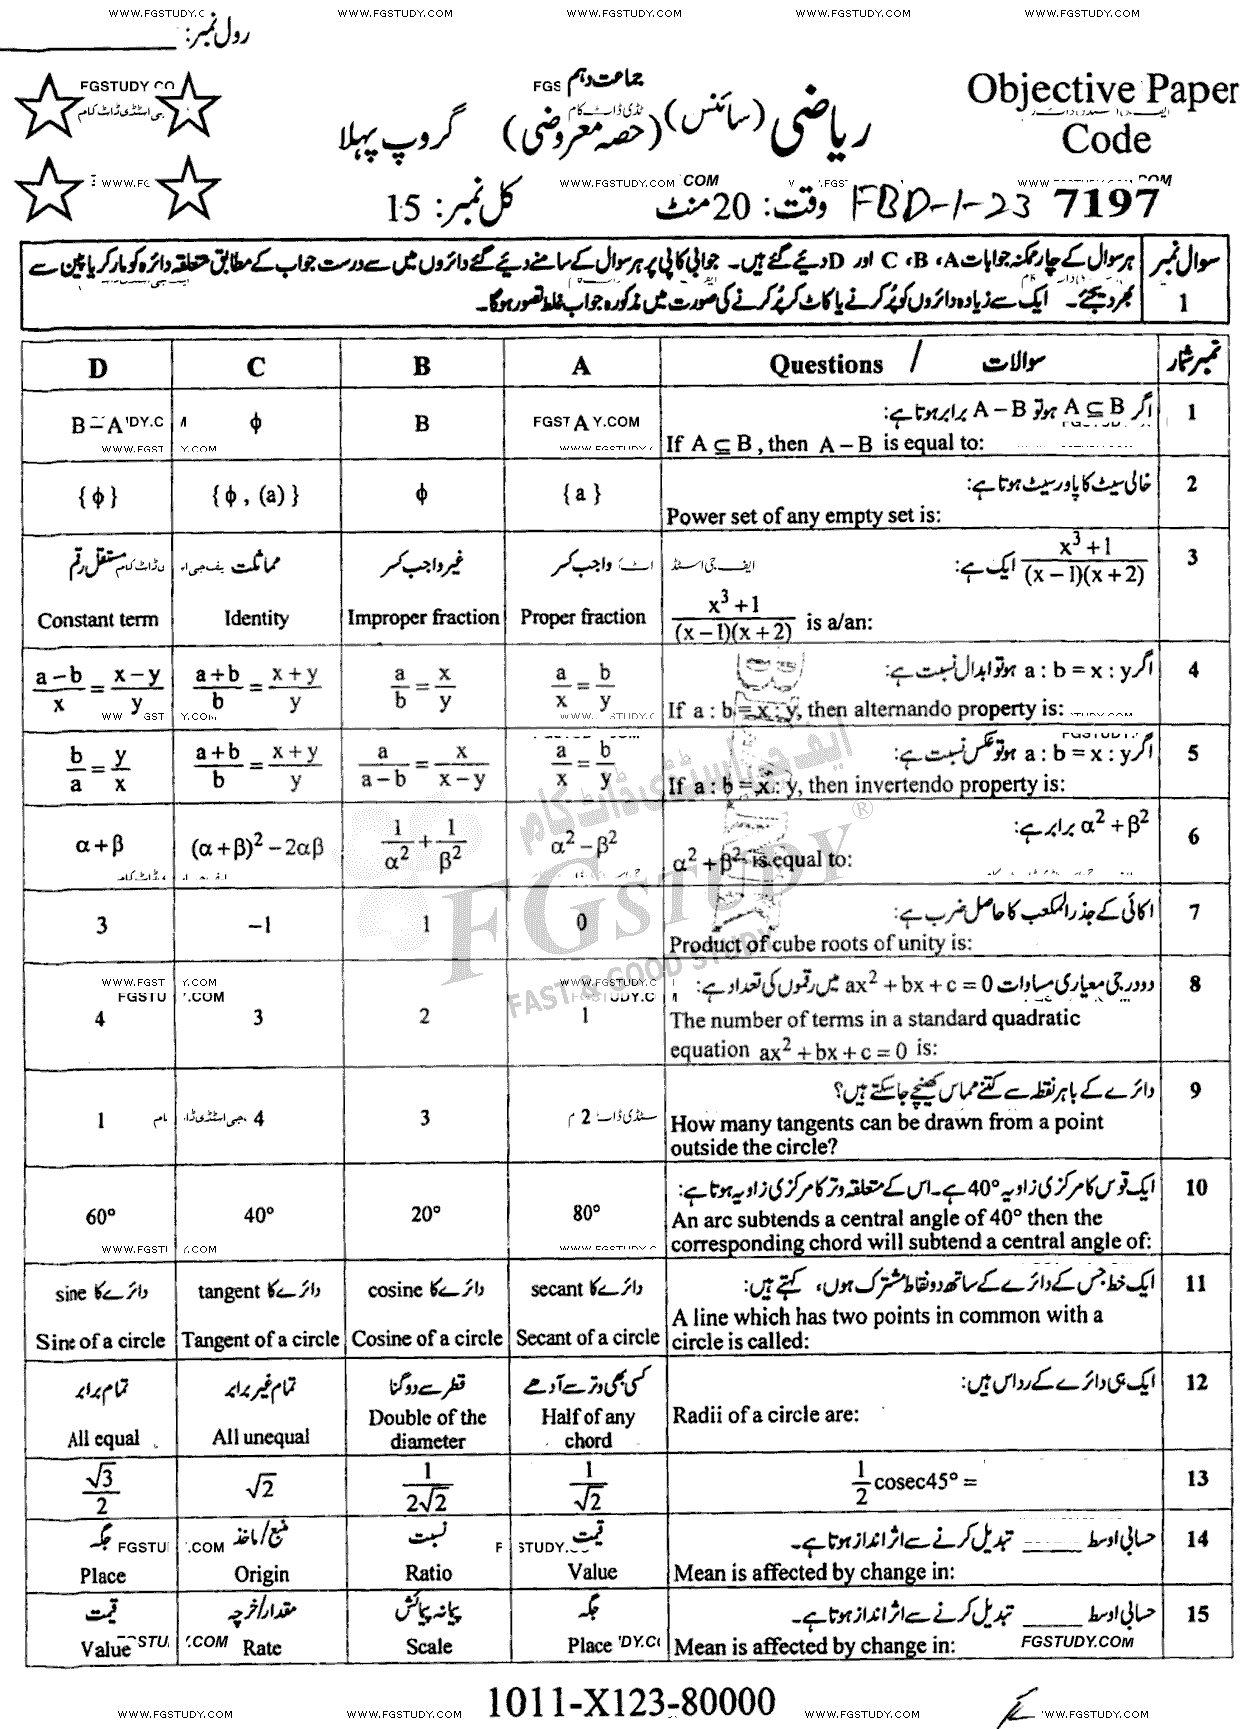 WWW.FGSTUDY.C WWW.FGSTUDY.COM WWW.FGSTUDY.COM WWW.FGSTUDY.COM WWW.FGSTUDY.COM
رول نمبر:
FGSTUDY.CO
FGS جماعت دہم
Objective Paper
Code
ریاضی (سائنس) (حصہ معروضی) گروپ پہلا
WWW.FG WWW.FGSTUDY.COM .COM
7197 FBD-1-23 وقت: 20 منٹ کل نمبر: 15
سوال نمبر 1
ہر سوال کے چار ممکنہ جوابات A، B، C اور D دیئے گئے ہیں۔ جوابی کاپی پر ہر سوال کے سامنے دیئے گئے دائروں میں سے درست جواب کے مطابق متعلقہ دائرہ کو مارکر یا پین سے
بھر دیجئے۔ ایک سے زیادہ دائروں کو پُر کرنے یا کاٹ کر پُر کرنے کی صورت میں مذکورہ جواب غلط تصور ہوگا۔
D C B A Questions / سوالات نمبر شمار
1 اگر A ⊆ B ہو تو A – B برابر ہوتا ہے:
If A ⊆ B , then A – B is equal to:
B – A ϕ B A
2 خالی سیٹ کا پاور سیٹ ہوتا ہے:
Power set of any empty set is:
{ ϕ } { ϕ , (a) } ϕ { a }
3 (x³ + 1)/((x – 1)(x + 2)) ایک ہے:
(x³ + 1)/((x – 1)(x + 2)) is a/an:
مستقل رقم مماثلت غیر واجب کسر واجب کسر
Constant term Identity Improper fraction Proper fraction
4 اگر a : b = x : y ہو تو ابدال نسبت ہے:
If a : b = x : y, then alternando property is:
(a – b)/x = (x – y)/y (a + b)/b = (x + y)/y a/b = x/y a/x = b/y
5 اگر a : b = x : y ہو تو عکس نسبت ہے:
If a : b = x : y, then invertendo property is:
b/a = y/x (a + b)/b = (x + y)/y a/(a – b) = x/(x – y) a/x = b/y
6 α² + β² برابر ہے:
α² + β² is equal to:
α + β (α + β)² – 2αβ 1/α² + 1/β² α² – β²
7 اکائی کے جذر المکعب کا حاصل ضرب ہے:
Product of cube roots of unity is:
3 –1 1 0
8 دو درجی معیاری مساوات ax² + bx + c = 0 میں رقموں کی تعداد ہے:
The number of terms in a standard quadratic
equation ax² + bx + c = 0 is:
4 3 2 1
9 دائرے کے باہر نقطہ سے کتنے مماس کھینچے جا سکتے ہیں؟
How many tangents can be drawn from a point
outside the circle?
1 4 3 2
10 ایک قوس کا مرکزی زاویہ 40° ہے۔ اس کے متعلقہ وتر کا مرکزی زاویہ ہوتا ہے:
An arc subtends a central angle of 40° then the
corresponding chord will subtend a central angle of:
60° 40° 20° 80°
11 ایک خط جس کے دائرے کے ساتھ دو نقاط مشترک ہوں، کہتے ہیں:
A line which has two points in common with a
circle is called:
دائرے کا sine دائرے کا tangent دائرے کا cosine دائرے کا secant
Sine of a circle Tangent of a circle Cosine of a circle Secant of a circle
12 ایک ہی دائرے کے رداس ہیں:
Radii of a circle are:
تمام برابر تمام غیر برابر قطر سے دوگنا کسی بھی وتر سے آدھے
All equal All unequal Double of the diameter Half of any chord
13 1/2 cosec45° =
√3/2 √2 1/(2√2) 1/√2
14 حسابی اوسط ______ تبدیل کرنے سے اثر انداز ہوتا ہے۔
Mean is affected by change in:
جگہ منبع/ماخذ نسبت قیمت
Place Origin Ratio Value
15 حسابی اوسط ______ تبدیل کرنے سے اثر انداز ہوتا ہے۔
Mean is affected by change in:
قیمت مقدار/خرچہ پیمانہ پیمائش جگہ
Value Rate Scale Place
FGSTUDY.COM
ایف جی اسٹڈی ڈاٹ کام
FGSTUDY®
FAST & GOOD STUDY
1011-X123-80000
WWW.FGSTUDY.COM WWW.FGSTUDY.COM WWW.FGSTUDY.COM WW.FGSTUDY.COM